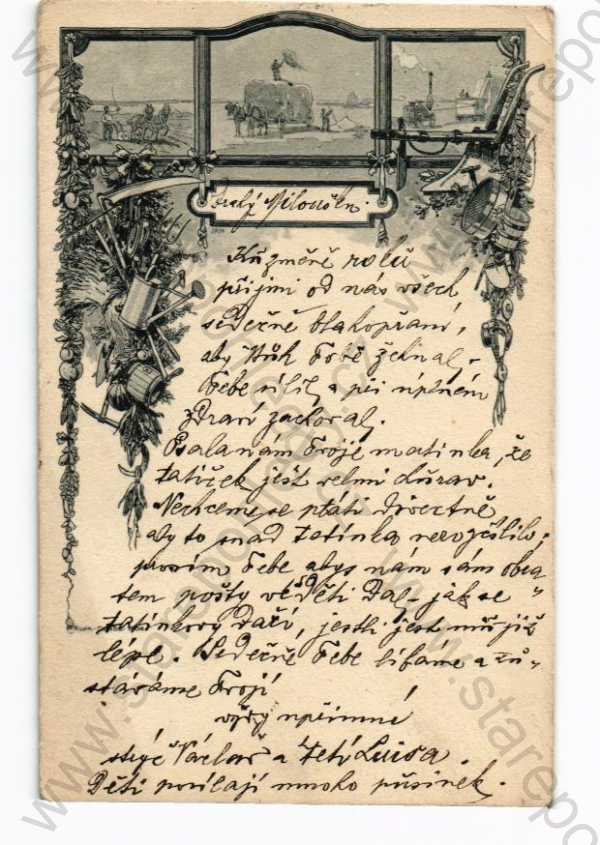 Drahý Miloušku.
Ku změně roků
přijmi od nás všech
srdečné blahopřání,
aby Bůh Tobě žehnal,
Tebe sílil a při úplném
zdraví zachoval.
Psala nám Tvoje matinka, že
tatíček jest velmi churav.
Nechceme se ptáti directně
aby to snad tatínka nerozčílilo;
prosím Tebe abys nám sám obra
tem pošty věděti dal, jak se
tatínkovy daří, jestli jest mu již
lépe. Srdečně Tebe líbáme a zů-
stáváme Tvoji
vždy upřímní
strýc Václav a teti Luisa.
Děti posílají mnoho pusinek.